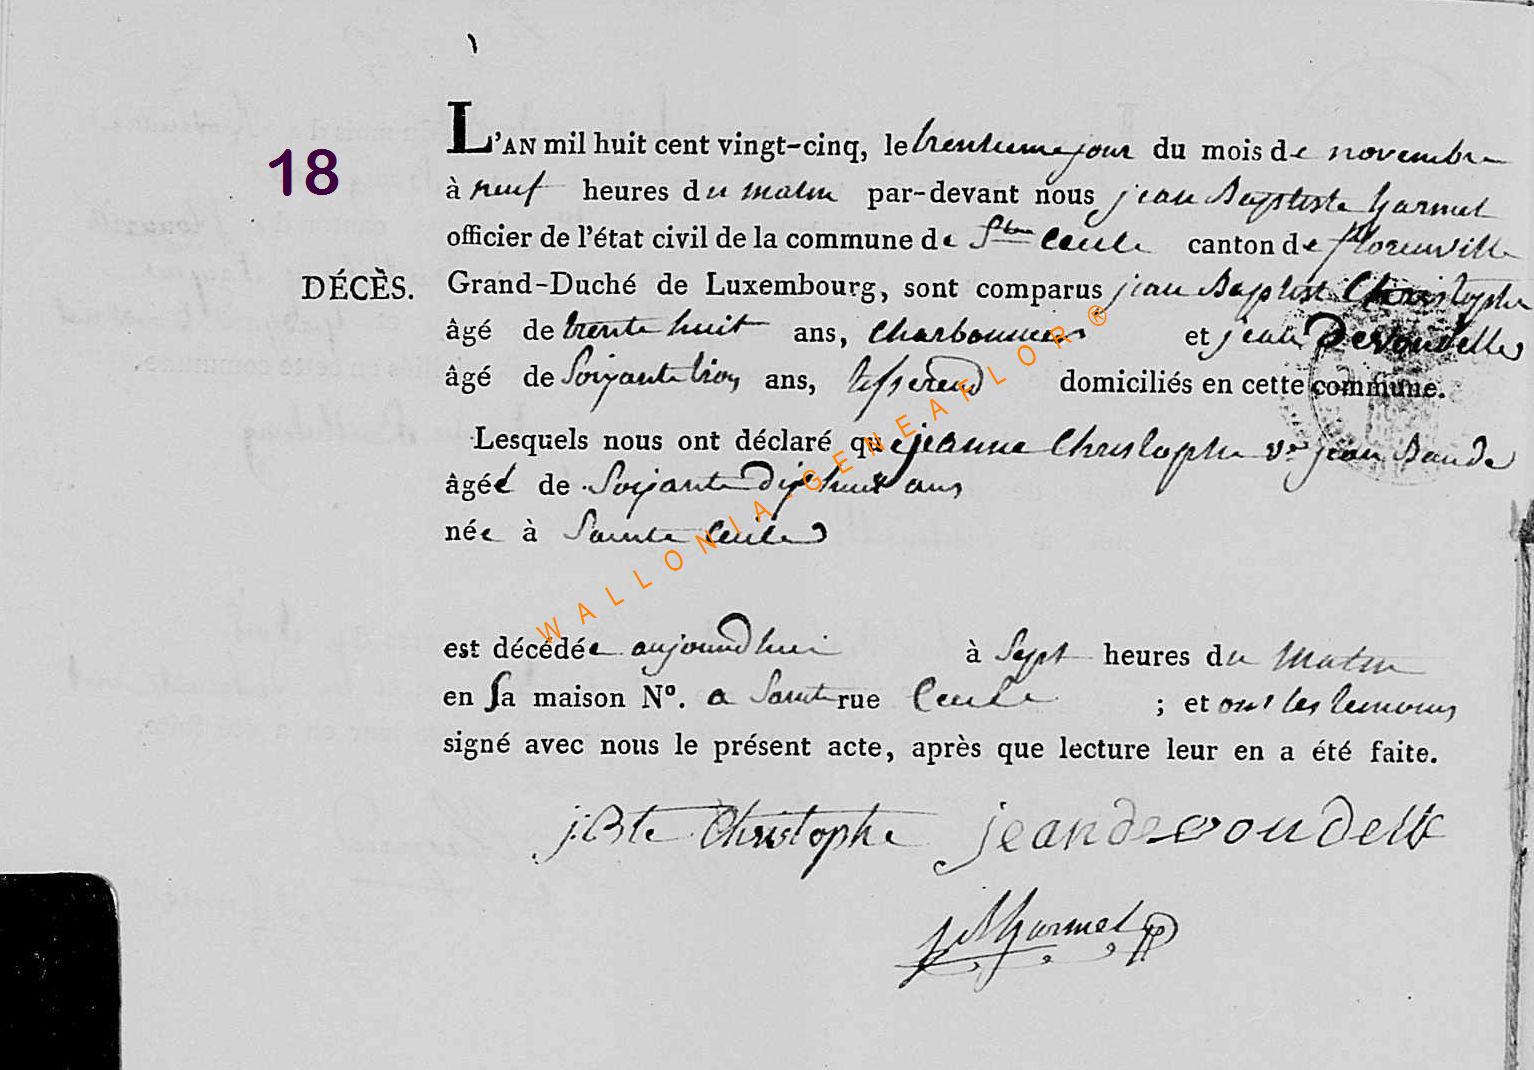 18
L'AN mil huit cent vingt-cinq, le trentieme jour du mois de novembre
à neuf heures du matin par-devant nous jean Baptiste Harmel
officier de l'état civil de la commune de Ste Cecile canton de florenville
DÉCÈS.
Grand-Duché de Luxembourg, sont comparus jean Baptist Christophe
âgé de trente huit ans, Charbonnier et jean Devoudelle
âgé de Soixante trois ans, tisserend domiciliés en cette commune.
Lesquels nous ont déclaré que jeanne Christophe ve jean Baude
âgée de Soixante dix huit ans
née à Sainte Cecile
est décédée aujourdhui à Sept heures du matin
en sa maison N°. a Sainte rue Cecile ; et ont les temoins
signé avec nous le présent acte, après que lecture leur en a été faite.
jBte Christophe jean devoudelle
jB harmel
WALLONIA-GENEAFLOR ®